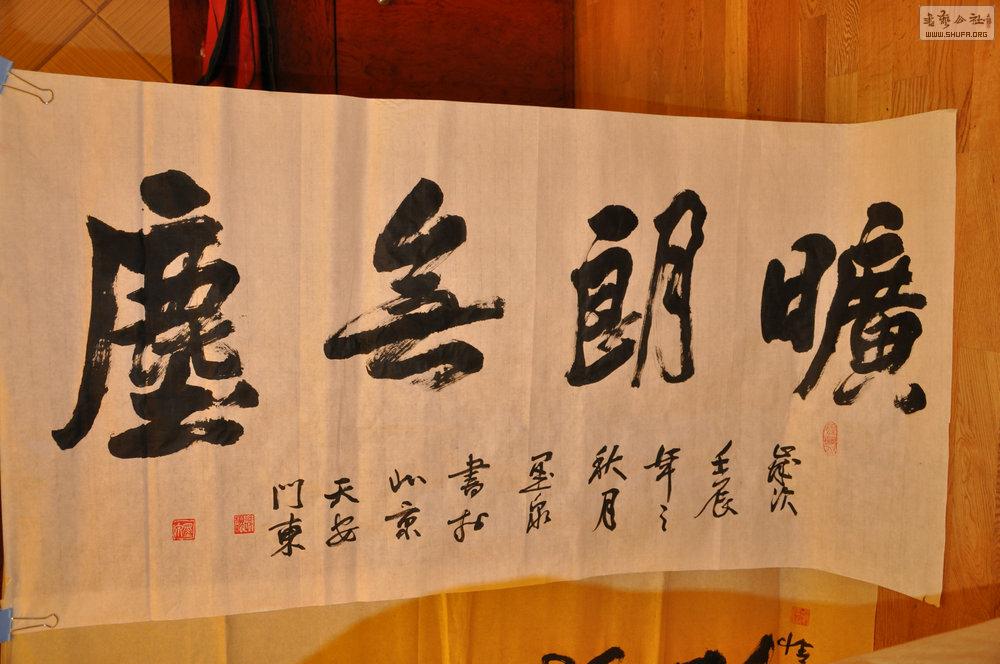 曠朗無塵
歲次
壬辰
年之
秋月
墨泉
書於
北京
天安
門東
書藝公社
WWW.SHUFA.ORG